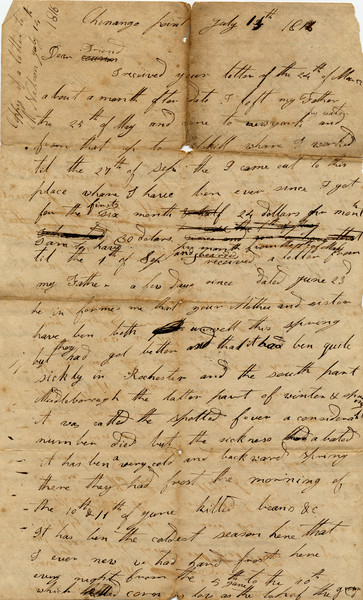 Copy of a letter to
1816
Chenango point July 14th 1816
Dear Friend
I received your letter of the 24th of March
about a month after date I left my Father
the 25th of May and came to new york and
from that up to whare I worked
til the 27th of Sep. the I came out to this
place whare I have ben ever since I got
for the first six month 24 dollars per month
I am to have 30 dollars per month from the of May
til the of Sep and I received a letter from
my Father a few days since dated june 23
he in forms me that your Mother and sister
have ben both unwell this spring
but they had got better and that it had ben quite
sickly in Rochester and the south part
Middleborough the latter part of winter & spring
it was called the spotted fever a considerable
number died but the sickness had abated
it has ben a very cold and backward spring
there they had frost the morning of
the 10th & 11th of june killed beans &c
It has ben the coldest season here that
I ever new we had hard frost here
every night from the 5 june to the 10th
which killed corn as low as the top of the ground